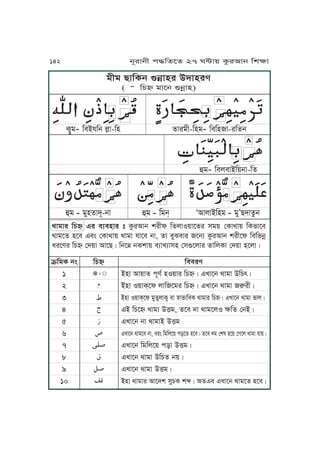 ১৪২ নূরানী পদ্ধতিতে ২৭ ঘণ্টায় কুরআন শিক্ষা
মীম ছাকিন গুন্নাহর উদাহরণ
( ~ চিহ্ন মানে গুন্নাহ)
تَرْمِيْهِمْ بِحِجَارَةٍ قُمْ بِإِذْنِ اللهِ
কুম- বিইযনি ল্লা-হি তারমী-হিম- বিহিজা-রতিন
هُمْ بِالْبَيِّنَاتِ
হুম- বিলবাইয়িনা-তি
عَلَيْهِمْ مُّؤْصَدَةٌ هُمْ مِّنْ هُمْ مُّهْتَدُوْنَ
হুম - মুহতাদূ-না হুম - মিন্ ‘আলাইহিম - মু’ছদাতুন
থামার চিহ্ন এর ব্যবহার ঃ কুরআন শরীফ তিলাওয়াতের সময় কোথায় কিভাবে
থামতে হবে এবং কোথায় থামা যাবে না, তা বুঝবার জন্যে কুরআন শরীফে বিভিন্ন
ধরণের চিহ্ন দেয়া আছে। নিম্নে নকশায় ব্যাখ্যাসহ সেগুলোর তালিকা দেয়া হলো।
ক্রমিক নং চিহ্ন বিবরণ
১ ইহা আয়াত পূর্ণ হওয়ার চিহ্ন। এখানে থামা উচিৎ।
২ م ইহা ওয়াক্ফে লাজিমের চিহ্ন। এখানে থামা জরুরী।
৩ ط ইহা ওয়াক্ফে মুত্বলাক্ব বা স্বাভাবিক থামার চিহ্ন। এখানে থামা ভাল।
৪ ج এই চিহ্নে থামা উত্তম, তবে না থামলেও ক্ষতি নেই।
৫ ز এখানে না থামাই উত্তম
৬ ص এখানে থামবে না, বরং মিলিয়ে পড়তে হবে। তবে দম শেষ হয়ে গেলে থামা যায়।
৭ صلى এখানে মিলিয়ে পড়া উত্তম।
৮ ق এখানে থামা উচিত নয়।
৯ صل এখানে থামা উত্তম।
১০ قف ইহা থামার আদেশ সূচক শব্দ। অতএব এখানে থামতে হবে।